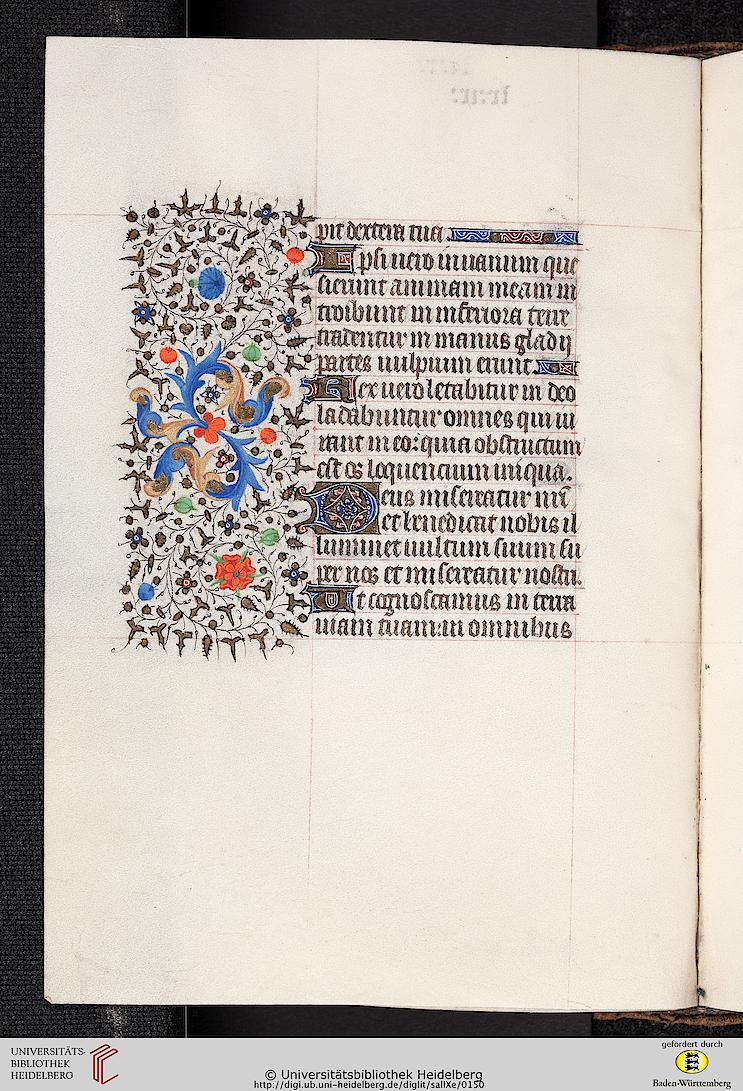 pit dextera tua.
Ipsi uero in uanum que
sierunt animam meam in
troibunt in inferiora terre
tradentur in manus gladij
partes uulpium erunt.
Rex uero letabitur in deo
ladabuntur omnes qui iu
rant in eo: quia obstructum
est os loquencium iniqua.
Deus misereatur nr̄i
et benedicat nobis il
luminet uultum suum su
per nos et misereatur nostri.
Ut cognoscamus in terra
uiam tuam: in omnibus
UNIVERSITÄTS-
BIBLIOTHEK
HEIDELBERG
© Universitätsbibliothek Heidelberg
http://digi.ub.uni-heidelberg.de/diglit/sallXe/0150
gefördert durch
Baden-Württemberg